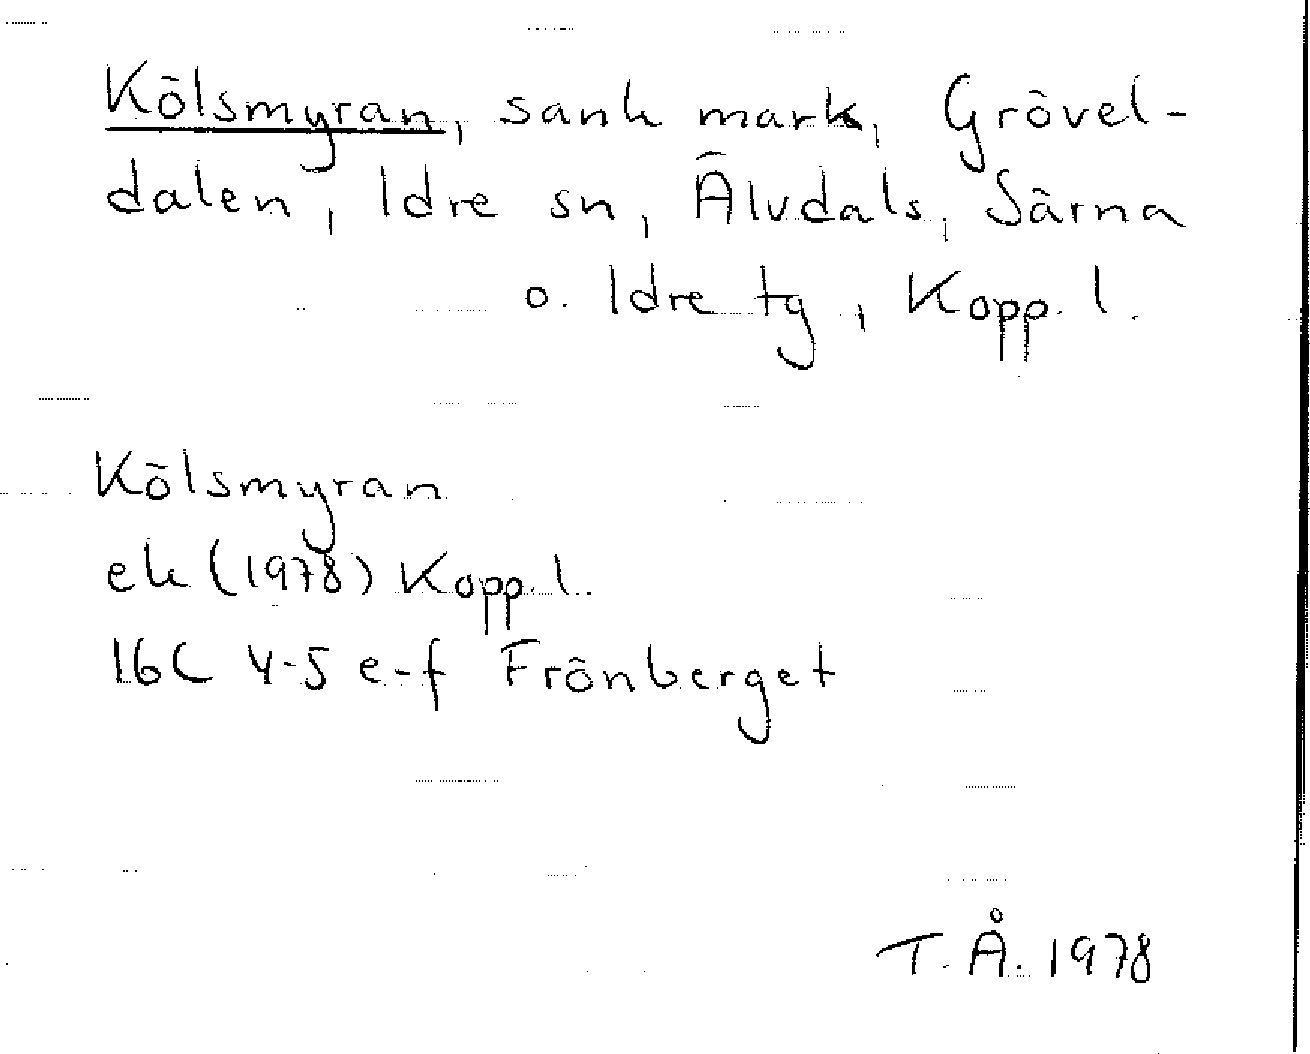 Kölsmyran, sank mark, Grövel-
dalen, Idre sn, Älvdals, Särna
o. Idre tg, Kopp. l.
Kölsmyran
ek (1978) Kopp. l.
16C 4-5 e-f Frönberget
T. Å. 1978